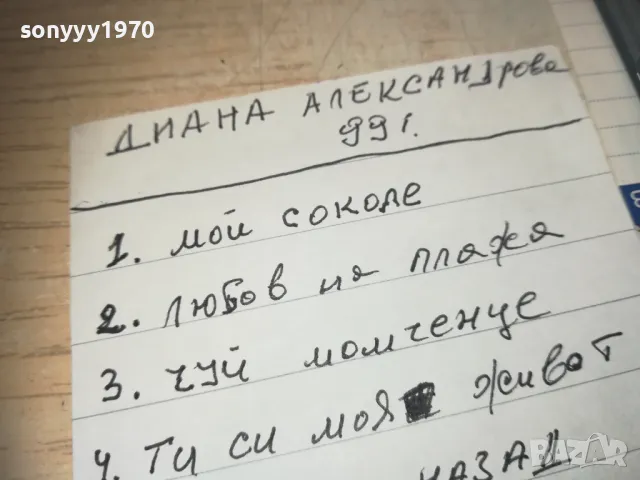 sonyyy1970
ДИАНА АЛЕКСАНДрова
99 г.
1. мой соколе
2. любов на плажа
3. чуй момченце
4. Ти си моя живот
назад
BAZAR